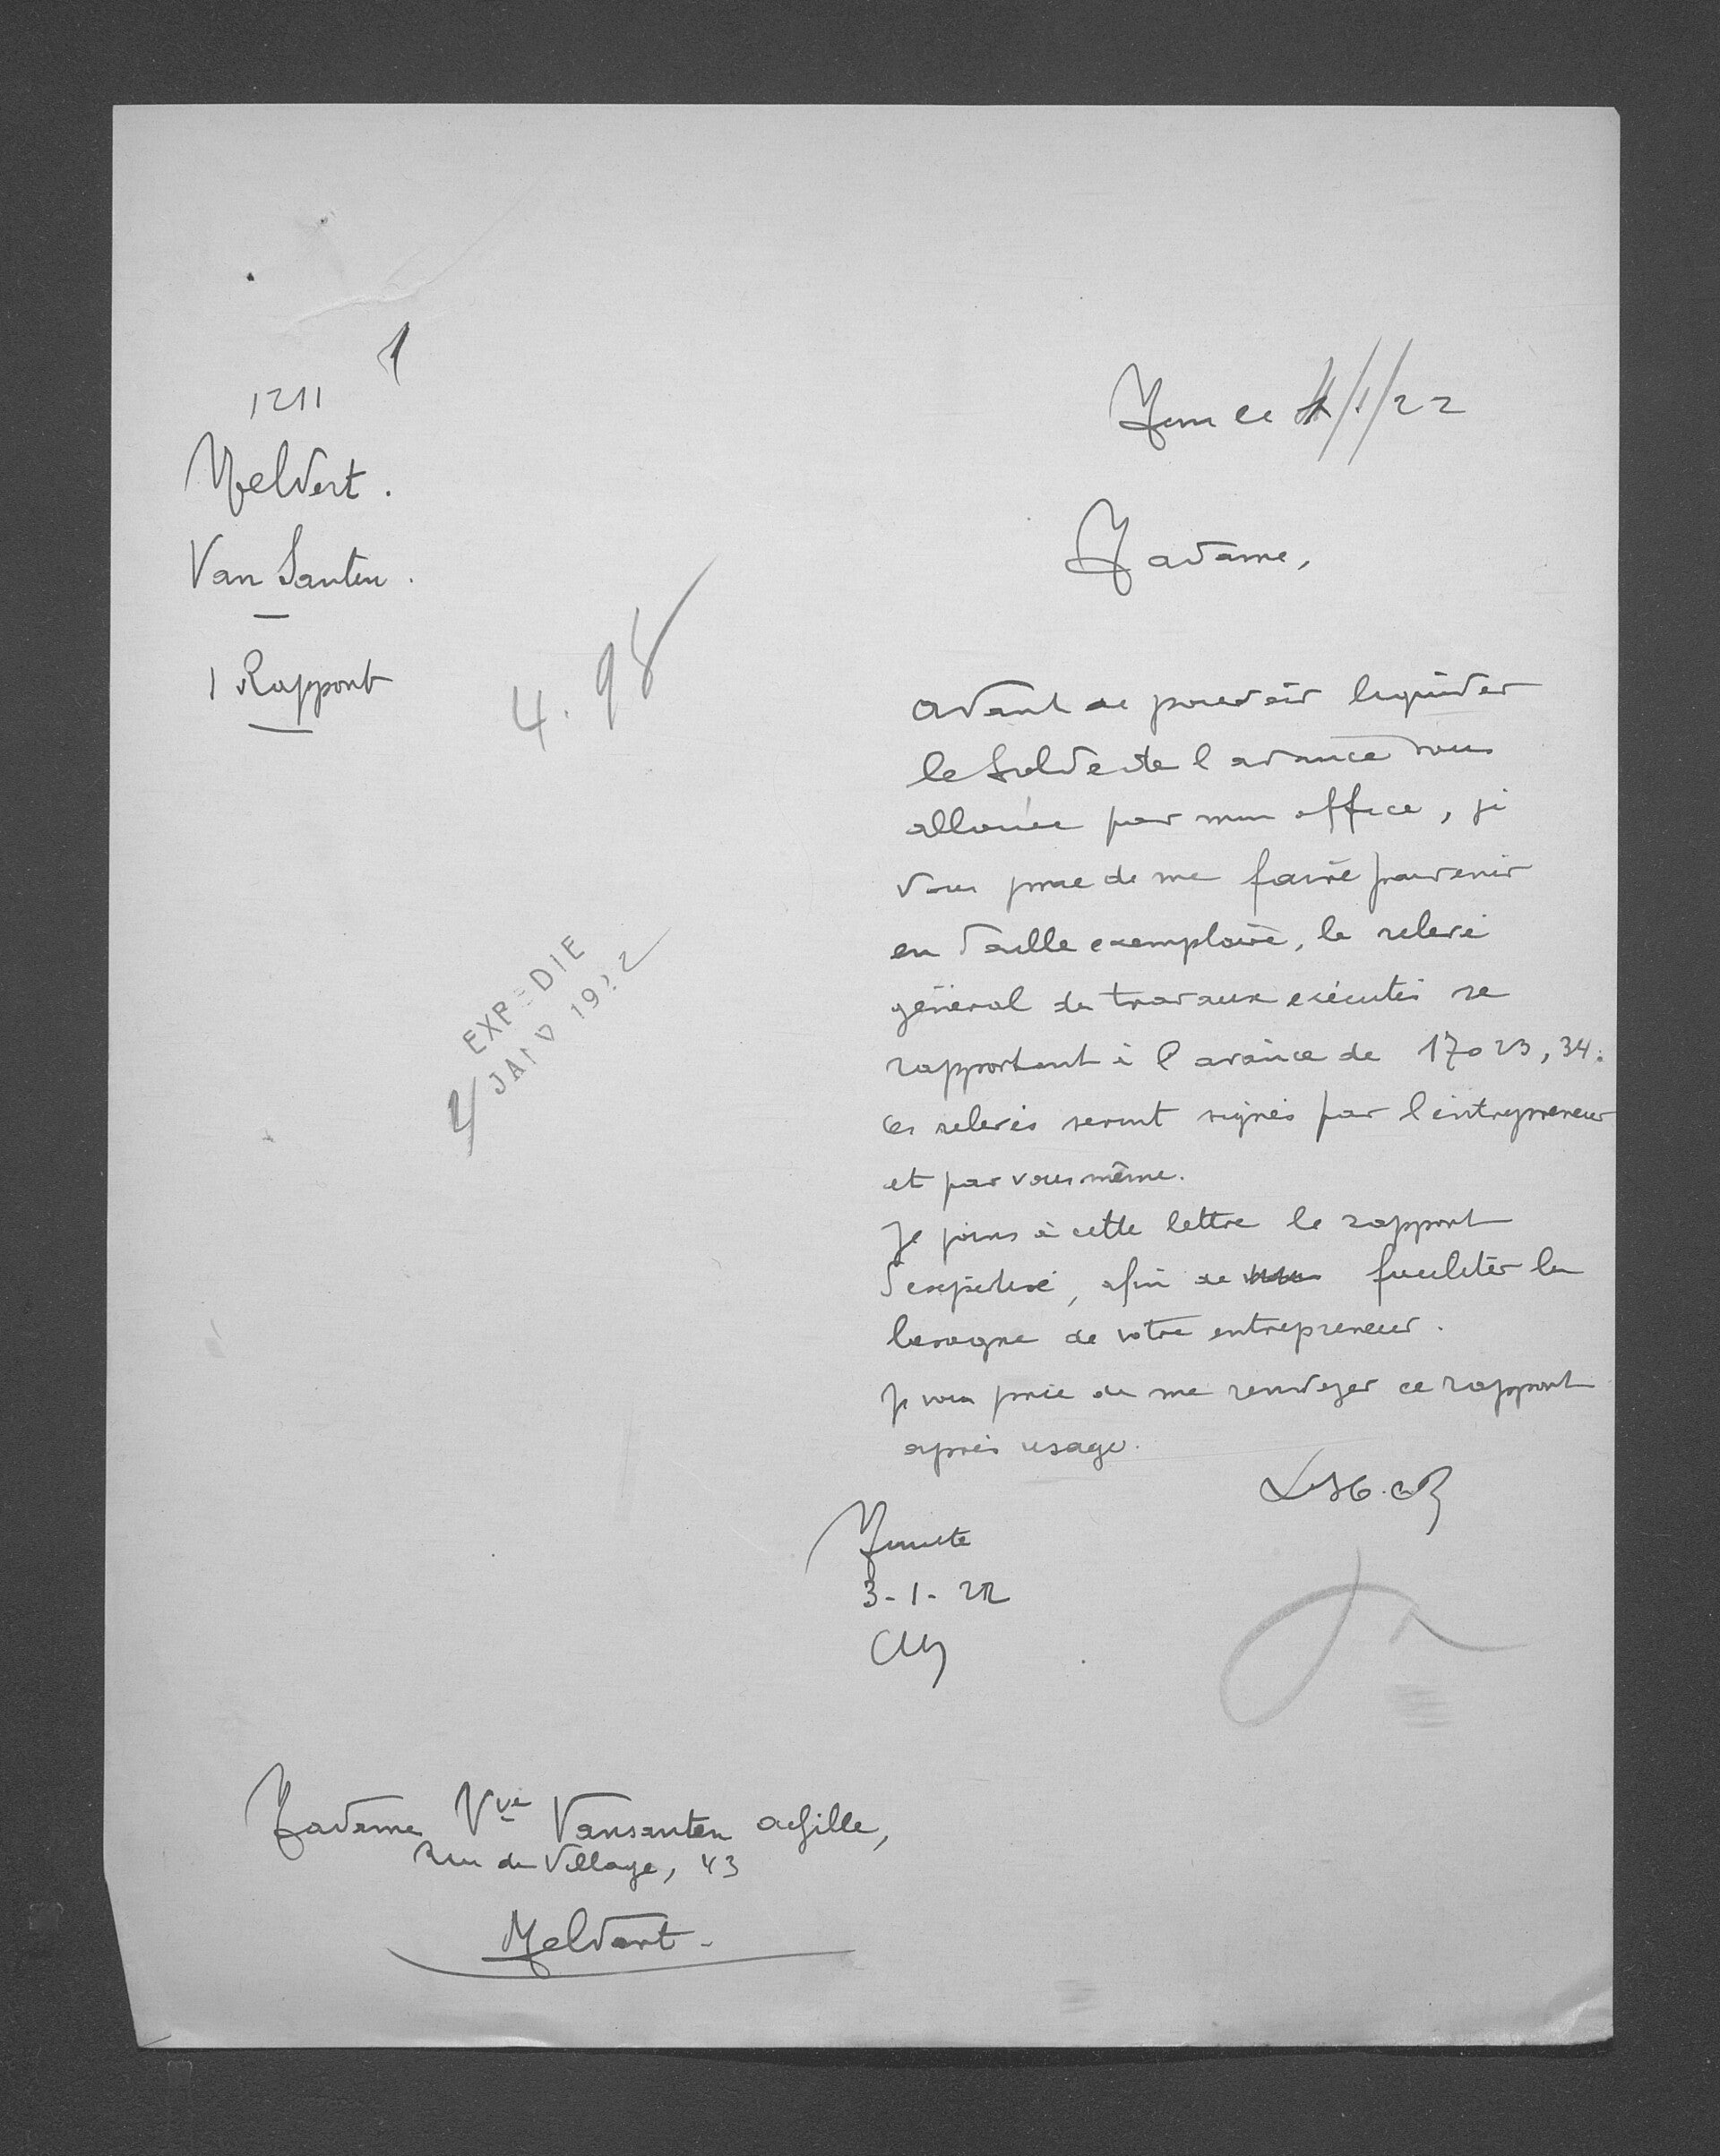 1
1211
Meldert.
Van Santen.
1 Rapport
4.98
EXPEDIE
4 JANV 1922
Mons le 4/1/22
Madame,
Avant de pouvoir liquider
le solde de l'avance vous
allouée par mon office, je
vous prie de me faire parvenir
en double exemplaire, le relevé
général des travaux exécutés se
rapportant à l'avance de 17023,34.
Ces relevés seront signés par l'entrepreneur
et par vous même.
Je joins à cette lettre le rapport
d'expertise, afin de faciliter la
besogne de votre entrepreneur.
Je vous prie de me renvoyer ce rapport
après usage.
Minute
3-1-22
Madame Vve Vansanten Achille,
Rue du Village, 43
Meldert.